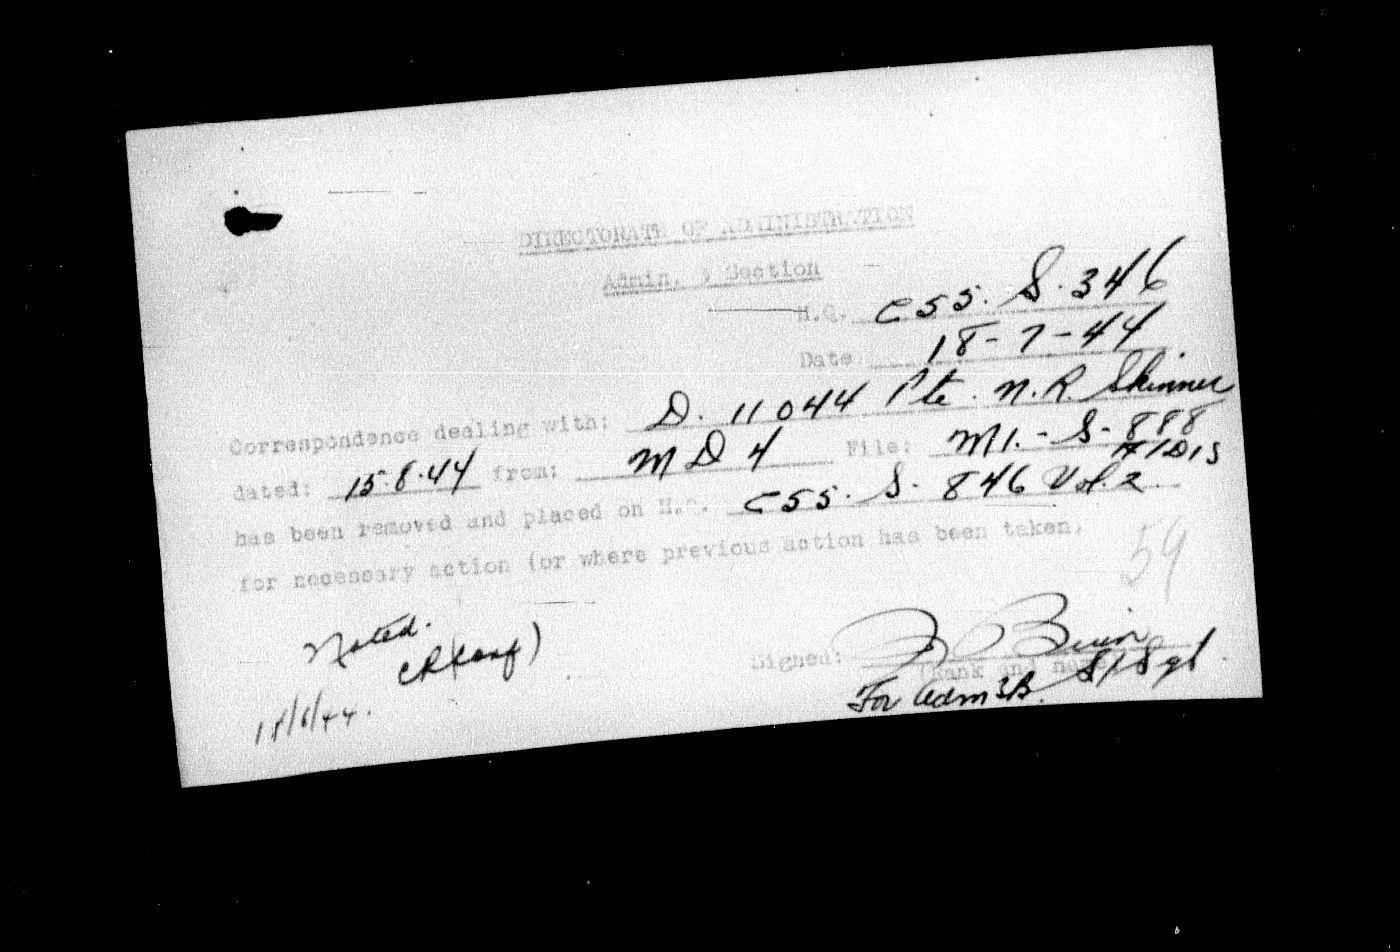 DIRECTORATE OF ADMINISTRATION
Admin. 3 Section
H.Q. C55. S. 346
Date 18-7-44
Correspondence dealing with: D. 11044 Pte. N.R. Skinner
dated: 15.8.44 from: MD 4 File: M1.-S-888
has been removed and placed on H.Q. C55. S. 846 Vol. 2
for necessary action (or where previous action has been taken,
59
Noted.
Signed:
(Rank and name)
S/Sgt.
For Adm 3B.